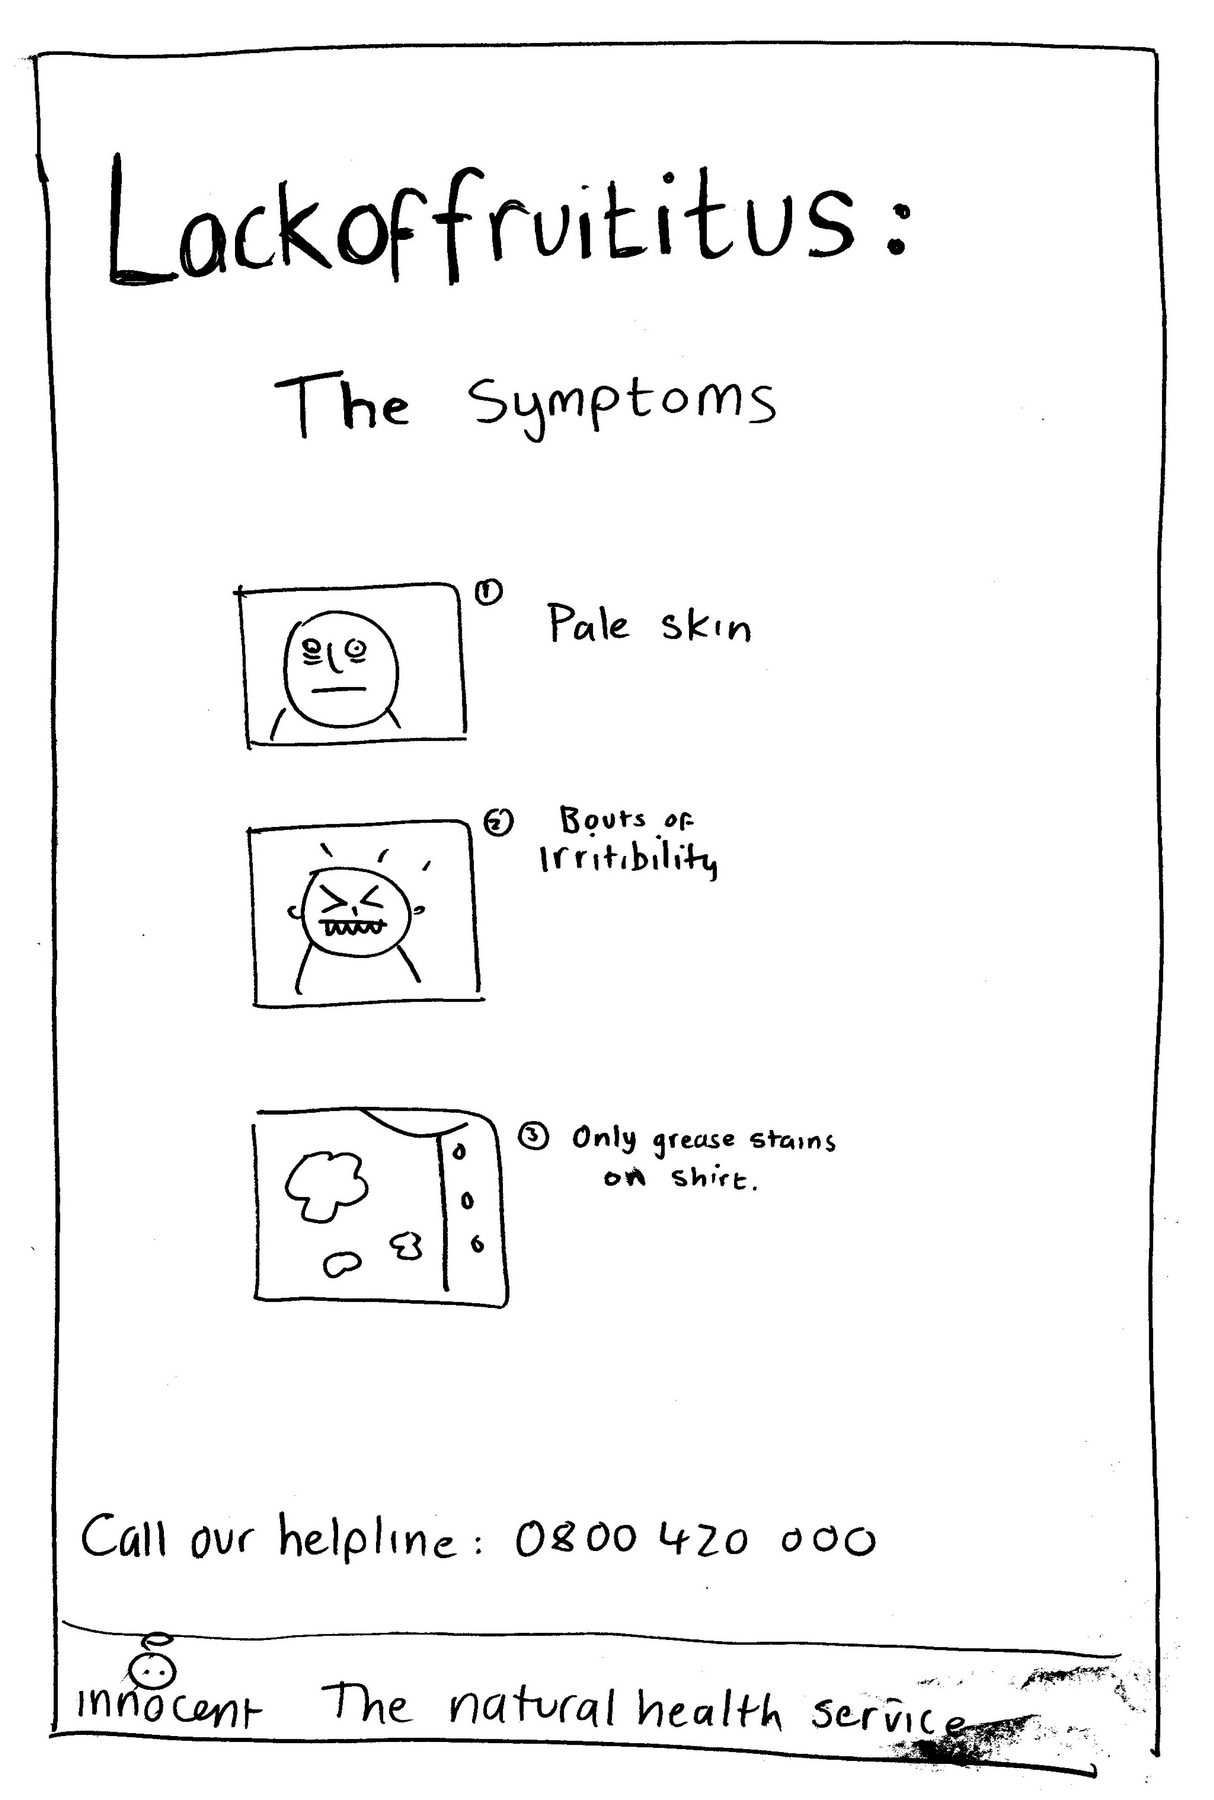 Lackoffruititus:
The Symptoms
① Pale skin
② Bouts of
Irritibility
③ Only grease stains
on shirt.
Call our helpline: 0800 420 000
innocent The natural health service